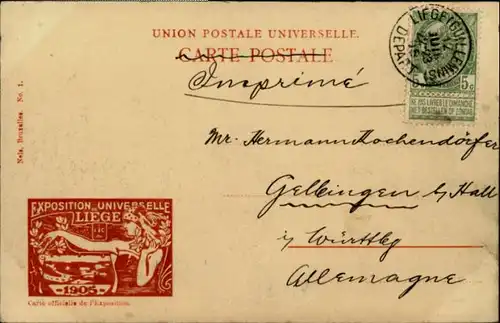 UNION POSTALE UNIVERSELLE.
CARTE POSTALE
Imprimé
LIEGE (GUILLEMINS)
DEPART
5c
NE PAS LIVRER LE DIMANCHE
NIET BESTELLEN OP ZONDAG
Nels, Bruxelles. No. 1.
Mr. Hermann Hochendörfer
Gelbingen b/Hall
i/Württbg
Allemagne
EXPOSITION UNIVERSELLE
LIEGE
-1905-
Carte officielle de l'Exposition.